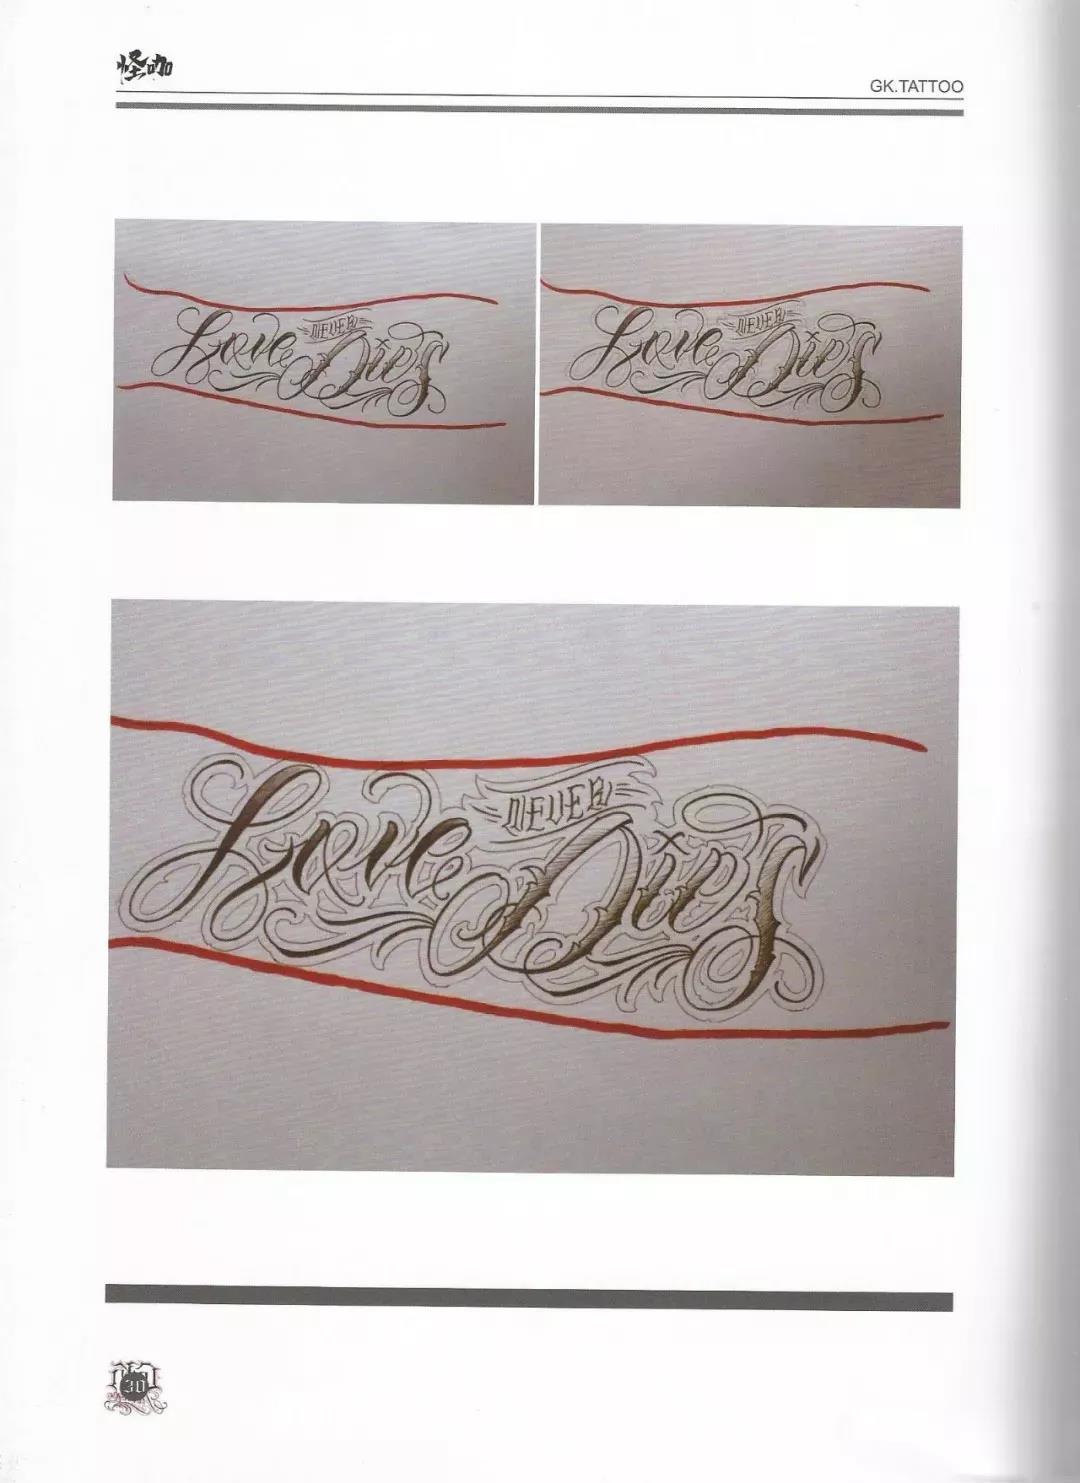 怪咖
GK.TATTOO
Love NEVER Dies
Love NEVER Dies
Love NEVER Dies
30